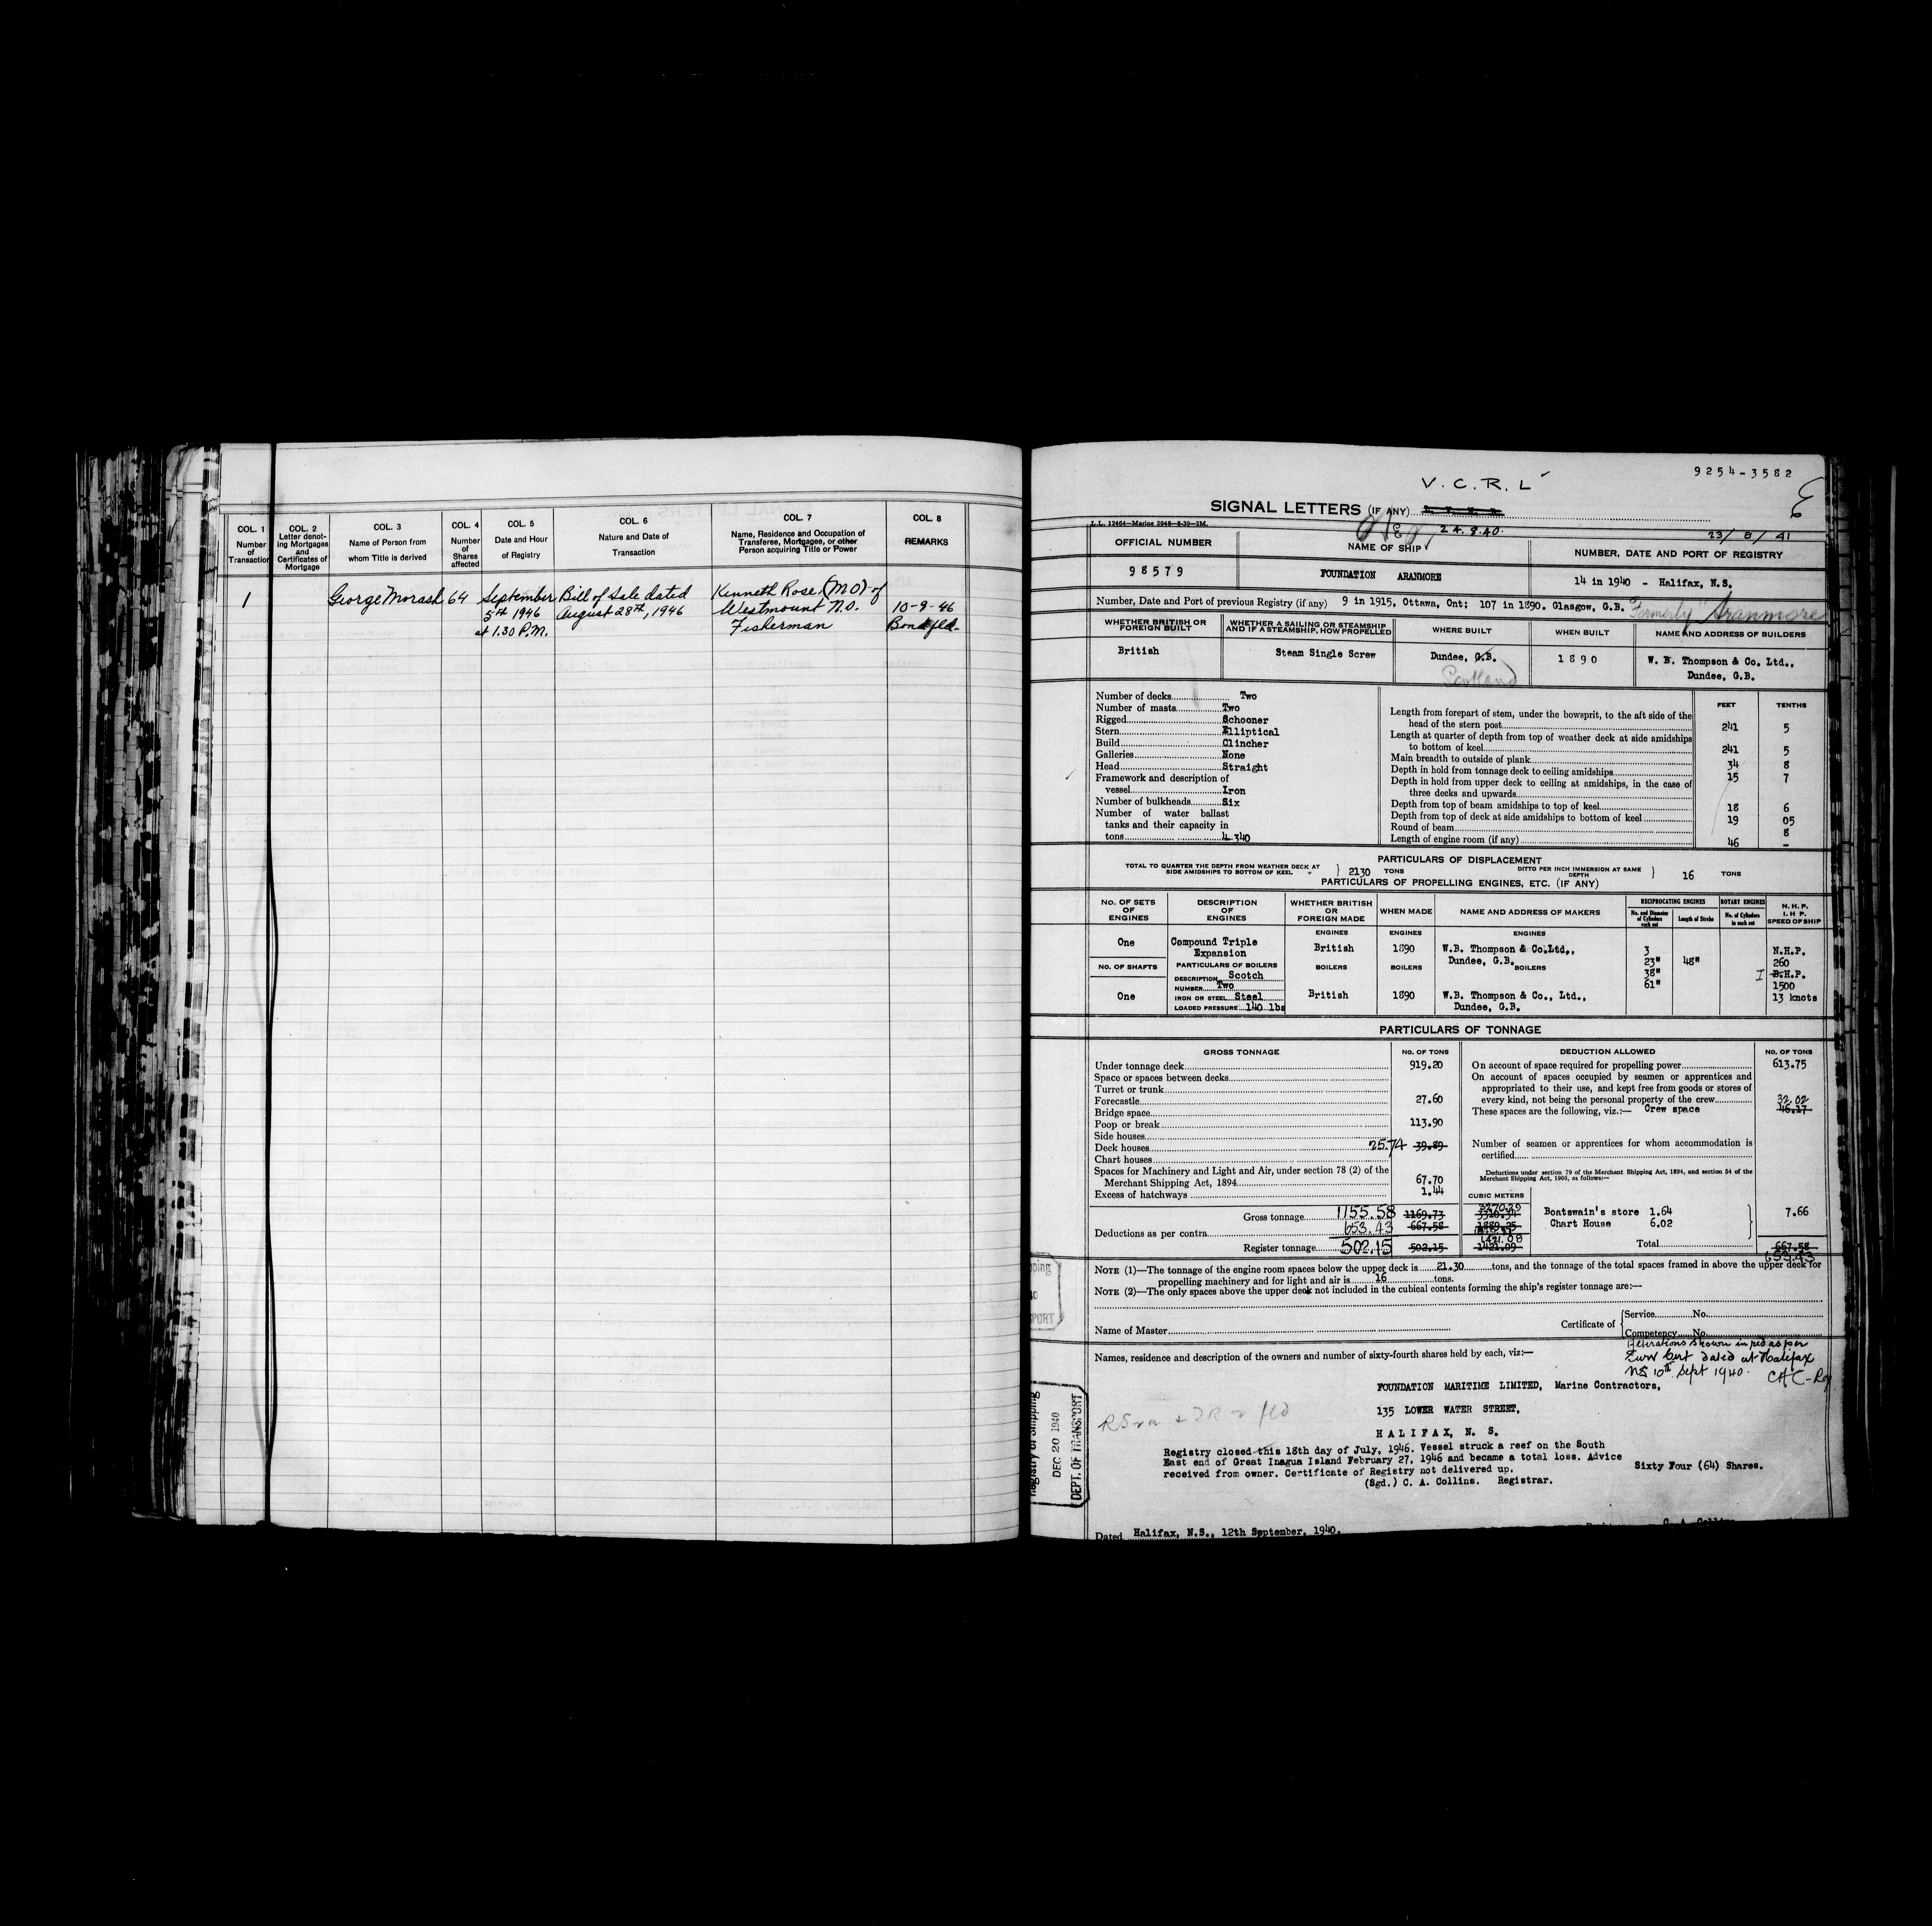 COL. 1
Number
of
Transaction
COL. 2
Letter denot-
ing Mortgages
and
Certificates of
Mortgage
COL. 3
Name of Person from
whom Title is derived
COL. 4
Number
of
Shares
affected
COL. 5
Date and Hour
of Registry
COL. 6
Nature and Date of
Transaction
COL. 7
Name, Residence and Occupation of
Transferee, Mortgagee, or other
Person acquiring Title or Power
COL. 8
REMARKS
1
George Morash
64
September
5th 1946
at 1.30 P.M.
Bill of Sale dated
August 28th, 1946
Kenneth Rose (MO) of
Westmount N.S.
Fisherman
10-9-46
9254-3582
V.C.R.L
SIGNAL LETTERS (IF ANY)
L.L. 12464—Marine 2948—8-30—2M.
24.9.40.
23/8/41
OFFICIAL NUMBER
NAME OF SHIP
NUMBER, DATE AND PORT OF REGISTRY
98579
FOUNDATION ARANMORE
14 in 1940 - Halifax, N.S.
Number, Date and Port of previous Registry (if any) 9 in 1915, Ottawa, Ont; 107 in 1890. Glasgow, G.B. Formerly "Aranmore
WHETHER BRITISH OR
FOREIGN BUILT
WHETHER A SAILING OR STEAMSHIP
AND IF A STEAMSHIP, HOW PROPELLED
WHERE BUILT
WHEN BUILT
NAME AND ADDRESS OF BUILDERS
British
Steam Single Screw
Dundee, G.B.
Scotland
1890
W. B. Thompson & Co. Ltd.,
Dundee, G.B.
Number of decks Two
Number of masts Two
Rigged Schooner
Stern Elliptical
Build Clincher
Galleries None
Head Straight
Framework and description of
vessel Iron
Number of bulkheads Six
Number of water ballast
tanks and their capacity in
tons 4 340
FEET TENTHS
Length from forepart of stem, under the bowsprit, to the aft side of the
head of the stern post 241 5
Length at quarter of depth from top of weather deck at side amidships
to bottom of keel 241 5
Main breadth to outside of plank 34 8
Depth in hold from tonnage deck to ceiling amidships 15 7
Depth in hold from upper deck to ceiling at amidships, in the case of
three decks and upwards
Depth from top of beam amidships to top of keel 18 6
Depth from top of deck at side amidships to bottom of keel 19 05
Round of beam 8
Length of engine room (if any) 46 -
PARTICULARS OF DISPLACEMENT
TOTAL TO QUARTER THE DEPTH FROM WEATHER DECK AT
SIDE AMIDSHIPS TO BOTTOM OF KEEL } 2130 TONS
DITTO PER INCH IMMERSION AT SAME
DEPTH } 16 TONS
PARTICULARS OF PROPELLING ENGINES, ETC. (IF ANY)
NO. OF SETS
OF
ENGINES
DESCRIPTION
OF
ENGINES
WHETHER BRITISH
OR
FOREIGN MADE
WHEN MADE
NAME AND ADDRESS OF MAKERS
RECIPROCATING ENGINES
No. and Diameter
of Cylinders
each set
Length of Stroke
ROTARY ENGINES
No. of Cylinders
in each set
N. H. P.
I. H. P.
SPEED OF SHIP
One
Compound Triple
Expansion
ENGINES
British
ENGINES
1890
ENGINES
W.B. Thompson & Co.Ltd.,
Dundee, G.B.
3
23"
38"
61"
48"
N.H.P.
260
I B.H.P.
1500
13 knots
NO. OF SHAFTS
One
PARTICULARS OF BOILERS
DESCRIPTION Scotch
NUMBER Two
IRON OR STEEL Steel
LOADED PRESSURE 140 lbs
BOILERS
British
BOILERS
1890
BOILERS
W.B. Thompson & Co., Ltd.,
Dundee, G.B.
PARTICULARS OF TONNAGE
GROSS TONNAGE
NO. OF TONS
Under tonnage deck 919.20
Space or spaces between decks
Turret or trunk
Forecastle 27.60
Bridge space
Poop or break 113.90
Side houses
Deck houses 25.74 39.89
Chart houses
Spaces for Machinery and Light and Air, under section 78 (2) of the
Merchant Shipping Act, 1894 67.70
Excess of hatchways 1.44
CUBIC METERS
Gross tonnage 1155.58 1169.73
Deductions as per contra 653.43 667.58
Register tonnage 502.15 502.15 1421.09
DEDUCTION ALLOWED
NO. OF TONS
On account of space required for propelling power 613.75
On account of spaces occupied by seamen or apprentices and
appropriated to their use, and kept free from goods or stores of
every kind, not being the personal property of the crew 32.02
These spaces are the following, viz.:— Crew space 46.17
Number of seamen or apprentices for whom accommodation is
certified
Deductions under section 79 of the Merchant Shipping Act, 1894, and section 54 of the
Merchant Shipping Act, 1906, as follows:—
Boatswain's store 1.64
Chart House 6.02
7.66
Total 667.58
653.43
NOTE (1)—The tonnage of the engine room spaces below the upper deck is 21.30 tons, and the tonnage of the total spaces framed in above the upper deck for
propelling machinery and for light and air is 16 tons.
NOTE (2)—The only spaces above the upper deck not included in the cubical contents forming the ship's register tonnage are:—
Name of Master
Certificate of { Service No.
Competency No.
Alterations shown in red as per
Surv Cert dated at Halifax
NS 10th Sept 1940. CAC-Reg
Names, residence and description of the owners and number of sixty-fourth shares held by each, viz:—
FOUNDATION MARITIME LIMITED, Marine Contractors,
135 LOWER WATER STREET,
HALIFAX, N. S.
Registry closed this 18th day of July, 1946. Vessel struck a reef on the South
East end of Great Inagua Island February 27, 1946 and became a total loss. Advice
received from owner. Certificate of Registry not delivered up.
(Sgd.) C. A. Collins. Registrar.
Sixty Four (64) Shares.
Registry of Shipping
DEC 20 1940
DEPT. OF TRANSPORT
Dated Halifax, N.S., 12th September, 1940.